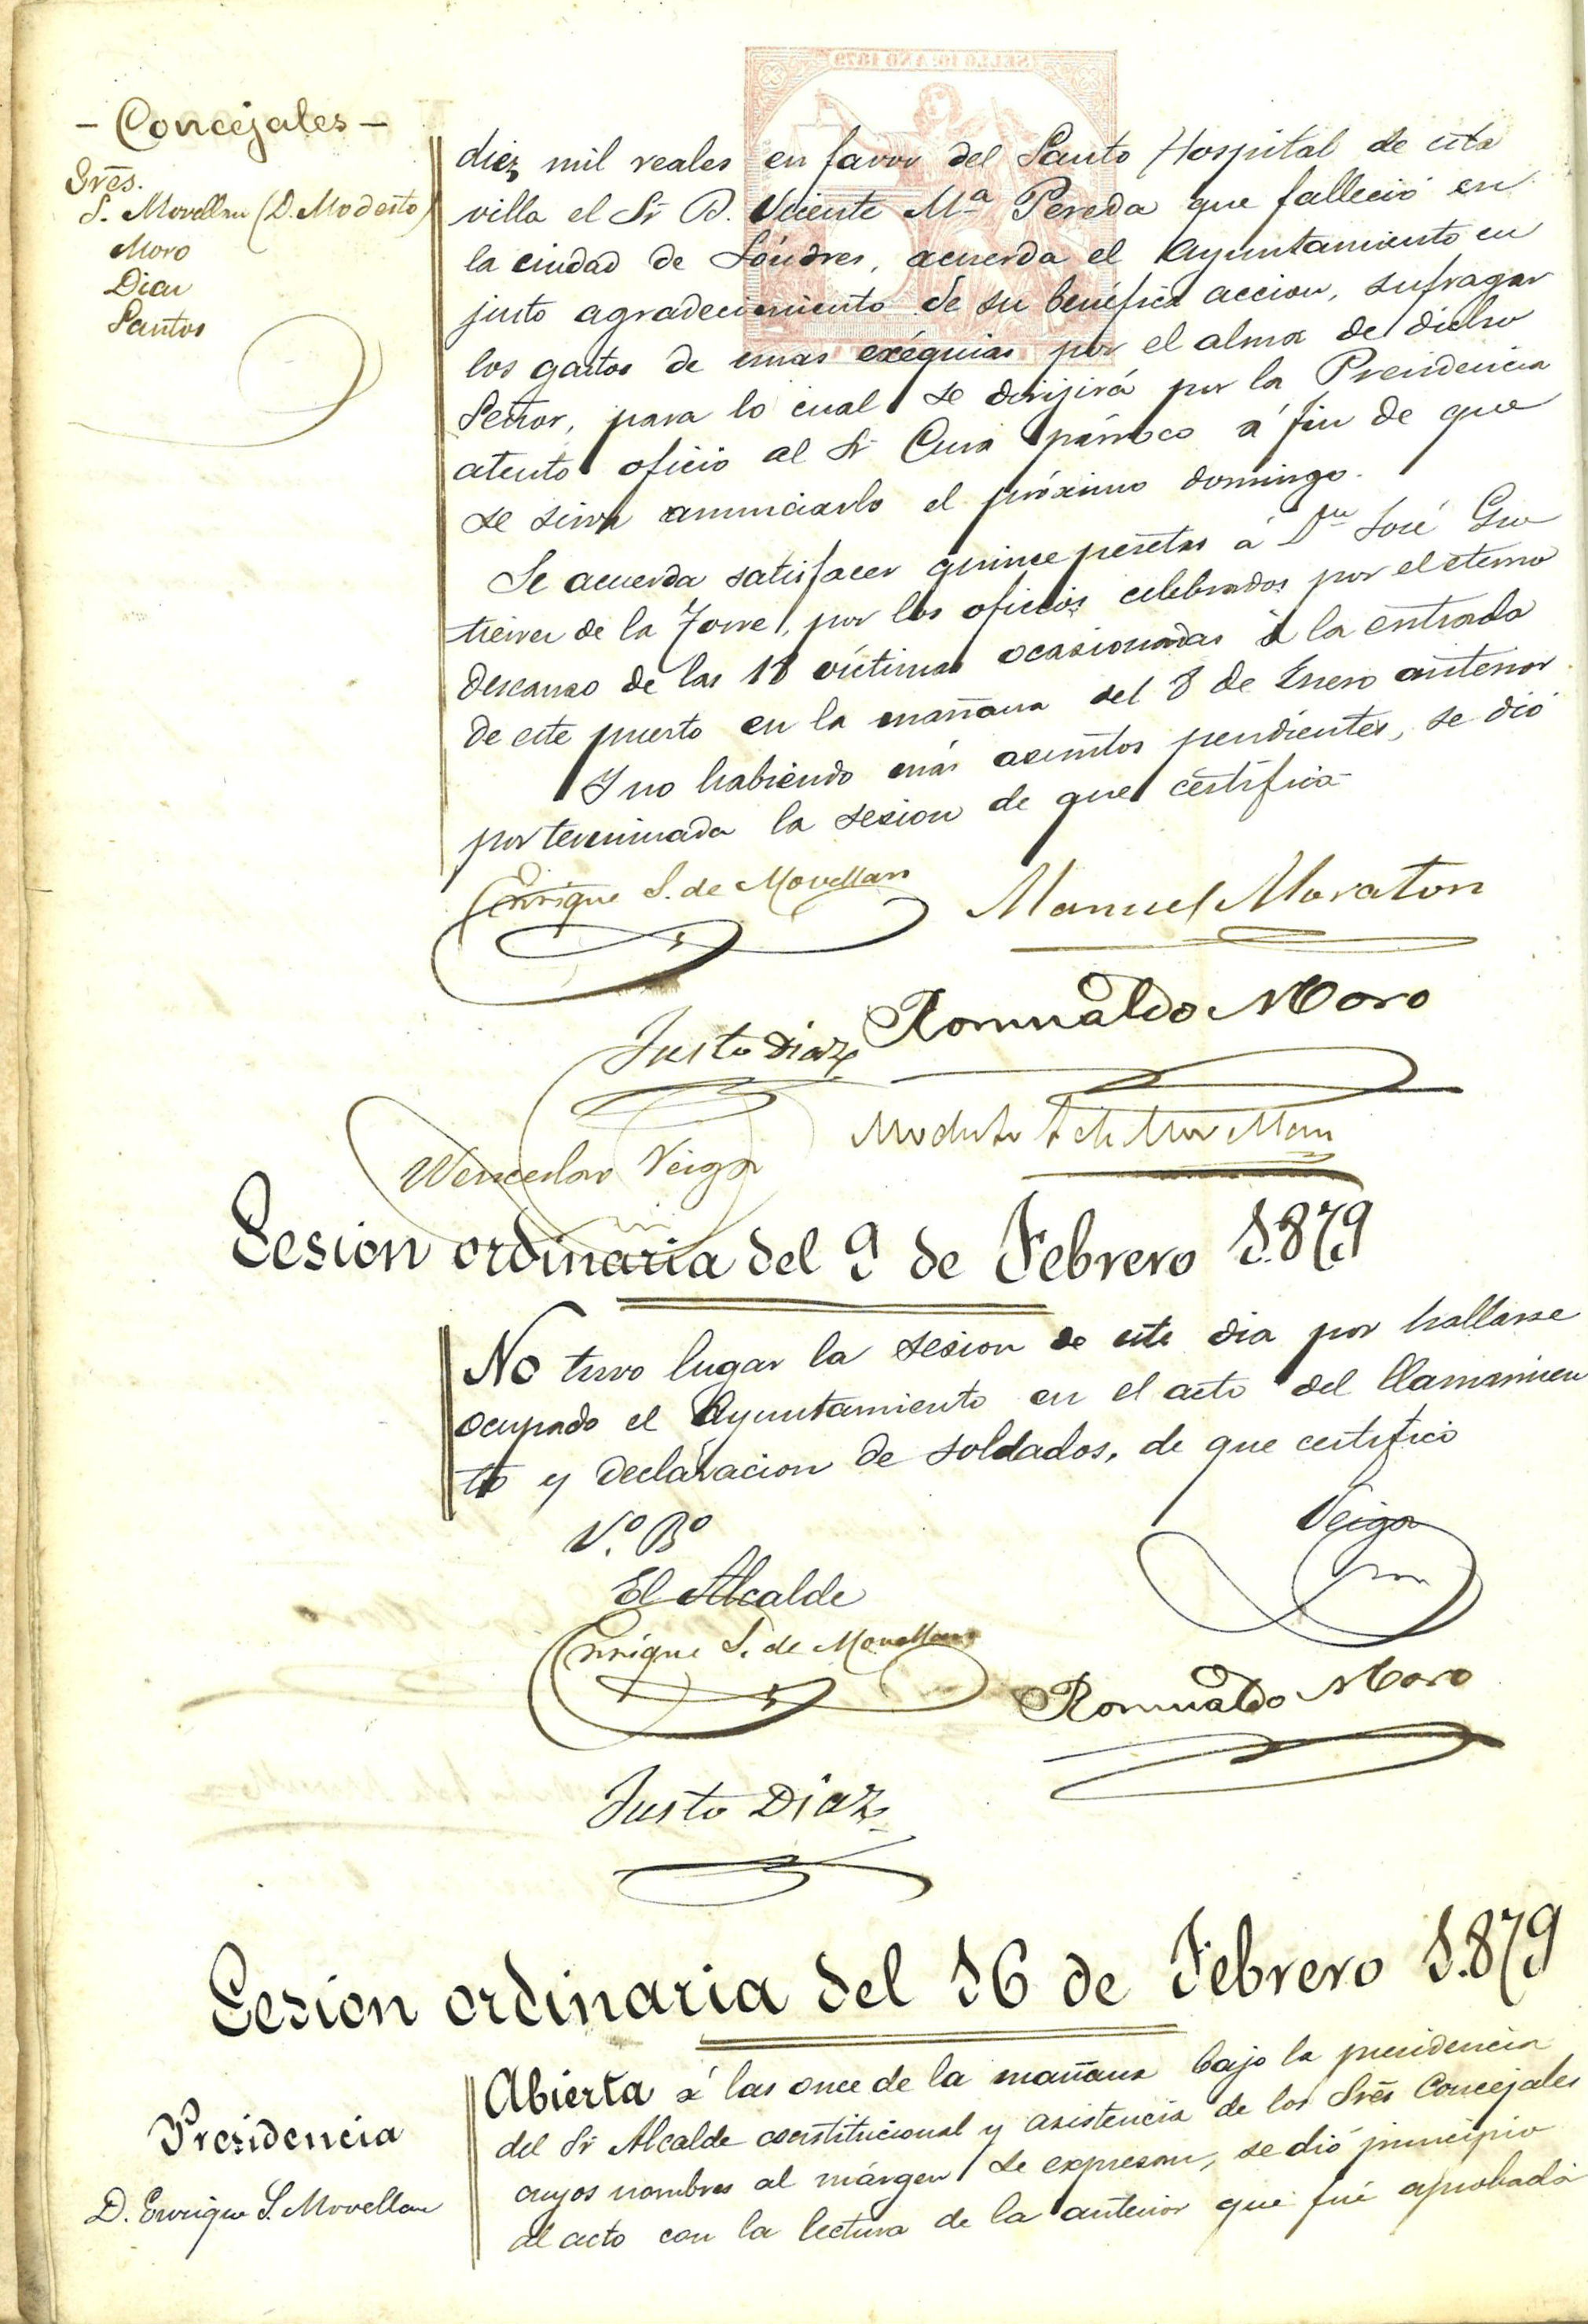 - Concejales -
Sres.
S. Movellan (D. Modesto)
Moro
Diaz
Santos
diez mil reales en favor del Santo Hospital de esta
villa el Sr D. Vicente Mª Pereda que falleció en
la ciudad de Lóndres, acuerda el Ayuntamiento en
justo agradecimiento de su benéfica accion, sufragar
los gastos de unas exéquias por el alma de dicho
Señor, para lo cual se dirijirá por la Presidencia
atento oficio al Sr Cura párroco á fin de que
se sirva anunciarlo el próximo domingo.
Se acuerda satisfacer quince pesetas á Dn José Gu
tierrez de la Torre, por los oficios celebrados por el eterno
descanso de las 18 víctimas ocasionadas á la entrada
de este puerto en la mañana del 8 de Enero anterior.
Y no habiendo más asuntos pendientes, se dió
por terminada la sesion de que certifica
Enrique S. de Movellan Manuel Maraton
Justo Diaz Romualdo Moro
Wenceslao Veiga Modesto S. de Movellan
Sesion ordinaria del 9 de Febrero 1.879
No tuvo lugar la sesion de este dia por hallarse
ocupado el Ayuntamiento en el acto del llamamien
to y declaracion de soldados, de que certifico
Vº. Bº
Veiga
El Alcalde
Enrique S. de Movellan
Romualdo Moro
Justo Diaz
Sesion ordinaria del 16 de Febrero 1.879
Presidencia
D. Enrique S. Movellan
Abierta á las once de la mañana bajo la presidencia
del Sr Alcalde constitucional y asistencia de los Sres Concejales
cuyos nombres al márgen se expresan, se dió principio
al acto con la lectura de la anterior que fué aprobada
SELLO 10º AÑO 1879